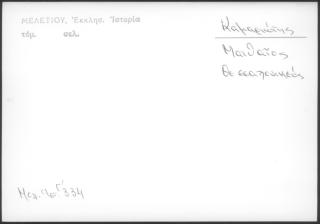 ΜΕΛΕΤΙΟΥ, Ἐκκλησ. Ἱστορία
τόμ. σελ.
Καμαριώτης
Ματθαῖος
Θεσσαλονικεύς
334